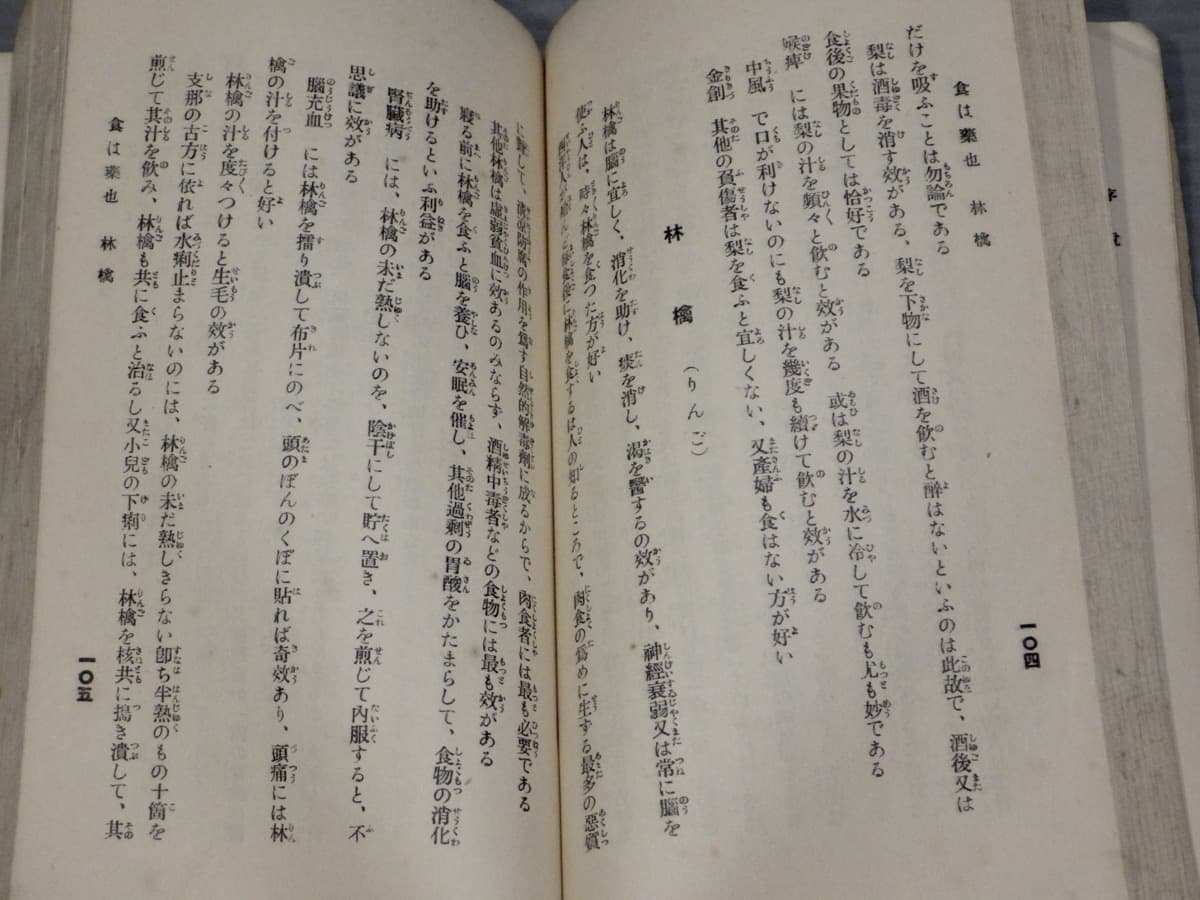 食は藥也　林檎
一〇四
だけを吸ふことは勿論である
梨は酒毒を消す效がある、梨を下物にして酒を飮むと醉はないといふのは此故で、酒後又は
食後の果物としては恰好である
喉痺　には梨の汁を頻々と飮むと效がある　或は梨の汁を水に冷して飮むも尤も妙である
中風　で口が利けないのにも梨の汁を幾度も續けて飮むと效がある
金創　其他の負傷者は梨を食ふと宜しくない、又產婦も食はない方が好い
林檎（りんご）
林檎は腦に宜しく、消化を助け、痰を消し、渴を醫するの效があり、神經衰弱又は常に腦を
使ふ人は、時々林檎を食つた方が好い
林檎を食するは人の知るところで、肉食の爲めに生する最多の惡質
防腐の作用を爲す自然的解毒劑に成るからで、肉食者には最も必要である
其他林檎は虛弱貧血に效あるのみならず、酒精中毒者などの食物には最も效がある
寢る前に林檎を食ふと腦を養ひ、安眠を催し、其他過剩の胃酸をかたまらして、食物の消化
を助けるといふ利益がある
腎臟病　には、林檎の未だ熟しないのを、陰干にして貯へ置き、之を煎じて內服すると、不
思議に效がある
腦充血　には林檎を擂り潰して布片にのべ、頭のぼんのくぼに貼れば奇效あり、頭痛には林
檎の汁を付けると好い
林檎の汁を度々つけると生毛の效がある
支那の古方に依れば水痢止まらないのには、林檎の未だ熟しきらない卽ち半熟のもの十箇を
煎じて其汁を飮み、林檎も共に食ふと治るし又小兒の下痢には、林檎を核共に搗き潰して、其
食は藥也　林檎
一〇五